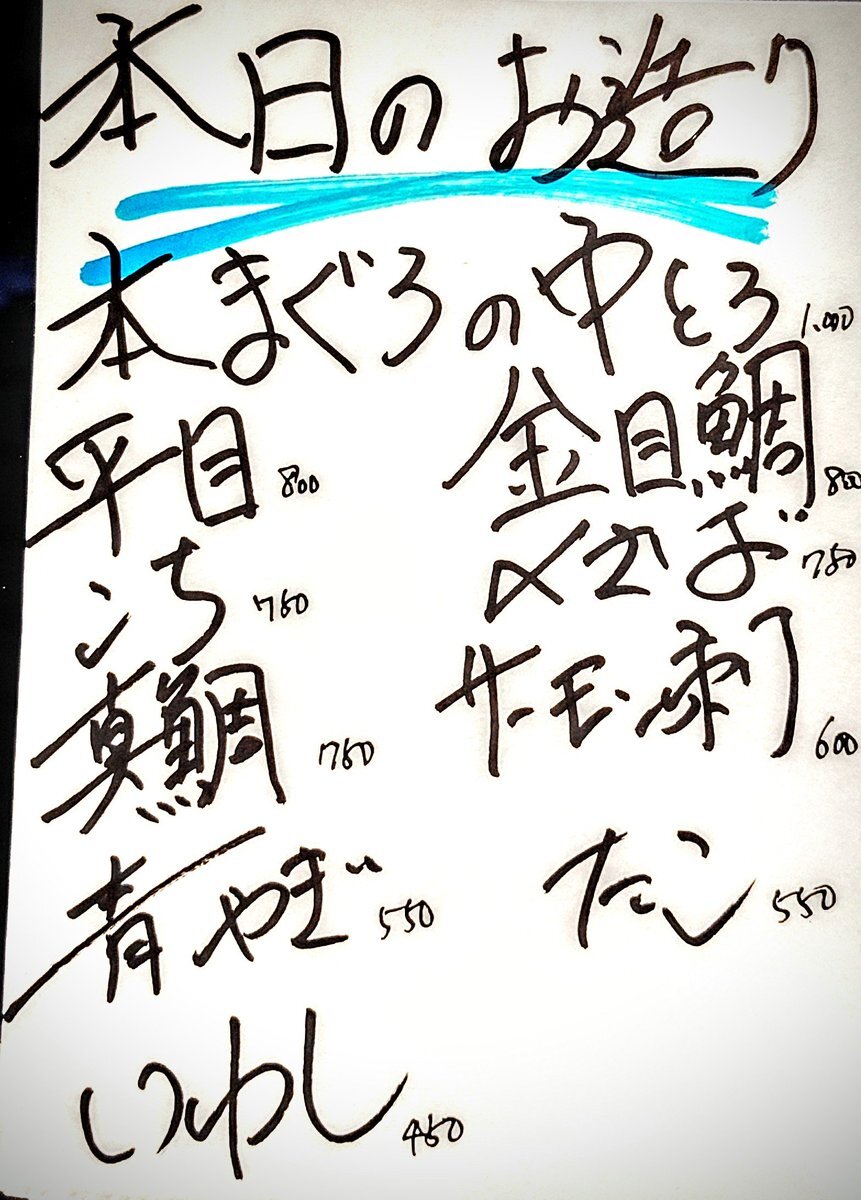 本日のお造り
本まぐろの中とろ 1.000
平目 800 金目鯛 800
こち 750 〆さば 750
真鯛 750 サーモン刺 600
青やぎ 550 たこ 550
いわし 450